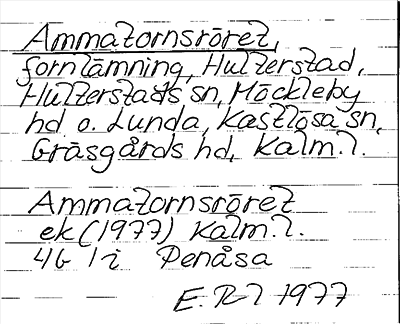 Ammatornsröret,
fornlämning, Hulterstad,
Hulterstads sn, Möckleby
hd o. Lunda, Kastlösa sn,
Gräsgårds hd, Kalm. l.
Ammatornsröret
ek (1977) Kalm. l.
4G 1 i Penåsa
E. Rl 1977